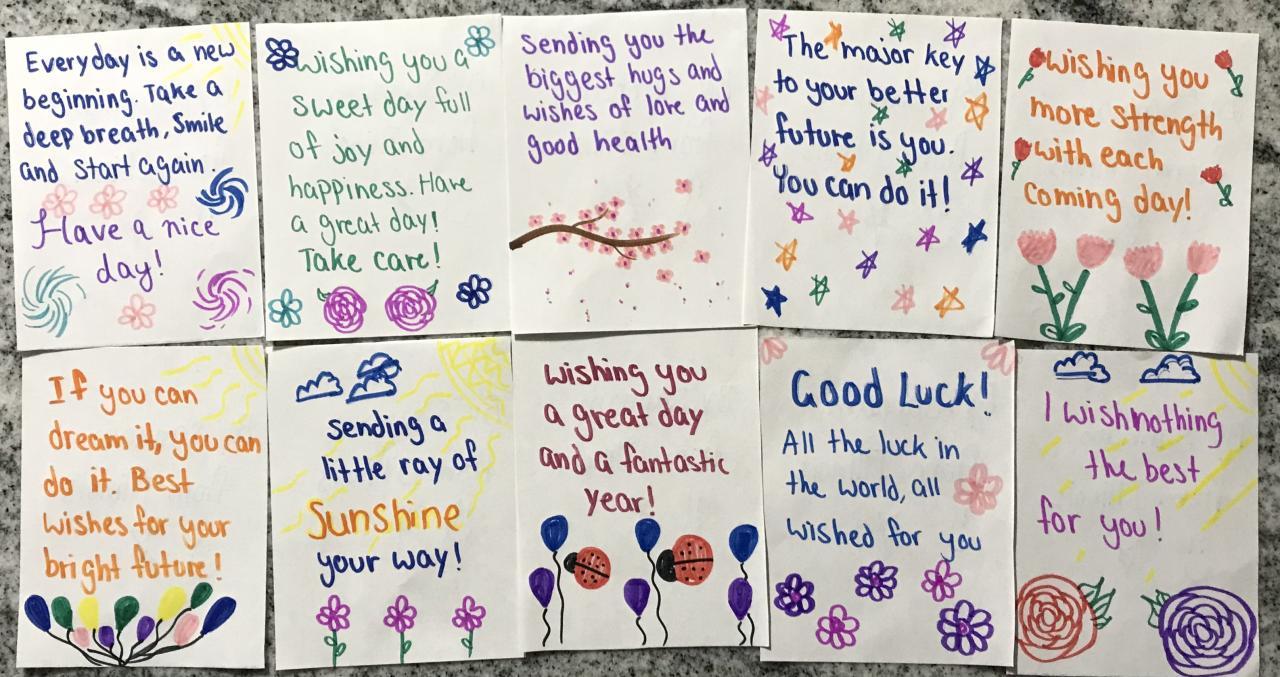 Everyday is a new
beginning. Take a
deep breath, Smile
and Start again.
Have a nice
day!
wishing you a
sweet day full
of joy and
happiness. Have
a great day!
Take care!
Sending you the
biggest hugs and
wishes of love and
good health
The major key
to your better
future is you.
You can do it!
wishing you
more strength
with each
coming day!
If you can
dream it, you can
do it. Best
wishes for your
bright future!
sending a
little ray of
Sunshine
your way!
wishing you
a great day
and a fantastic
year!
Good Luck!
All the luck in
the world, all
wished for you
I wish nothing
the best
for you!